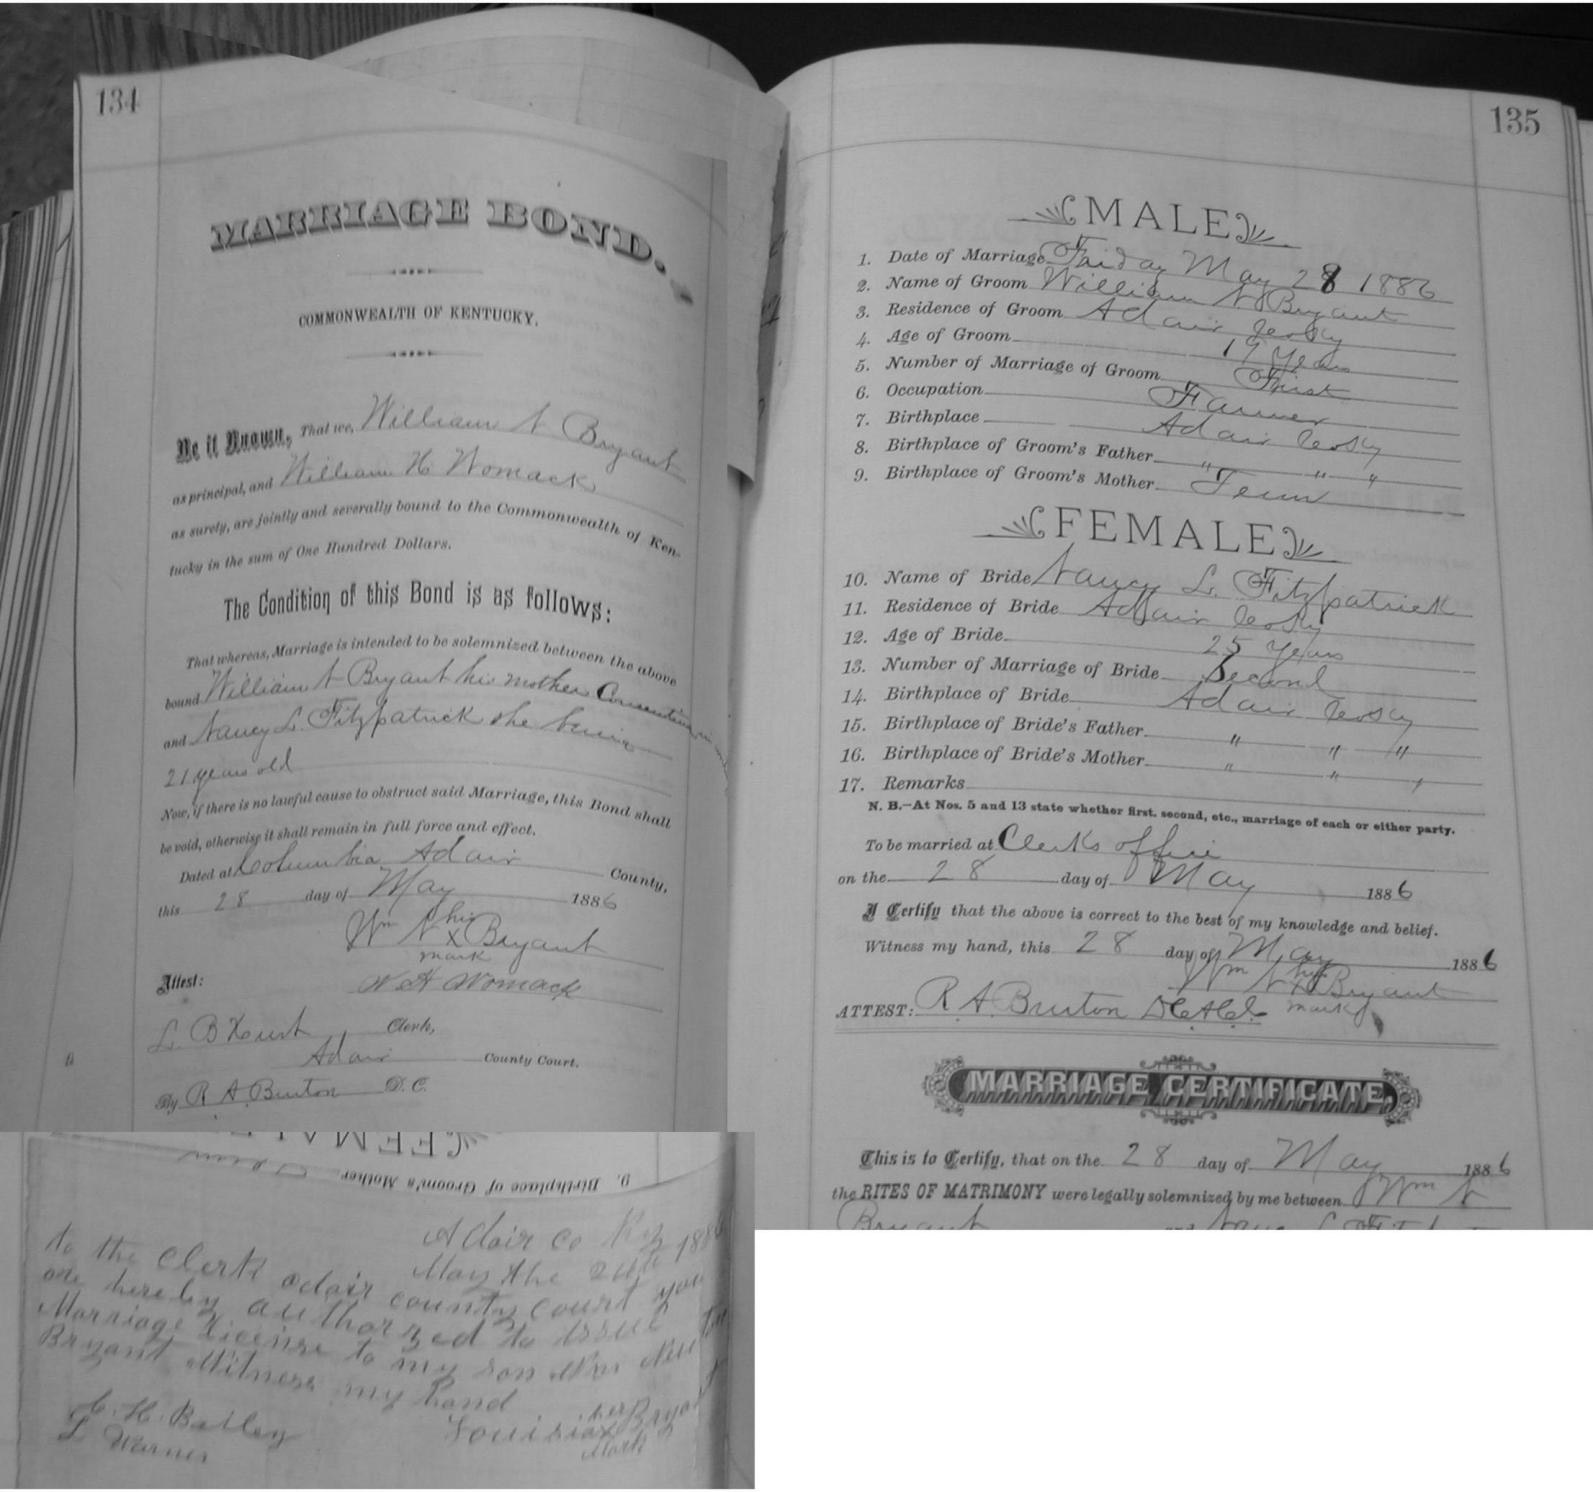 134
MARRIAGE BOND.
COMMONWEALTH OF KENTUCKY.
Be it Known, That we, William N Bryant
as principal, and William H Womack
as surety, are jointly and severally bound to the Commonwealth of Ken-
tucky in the sum of One Hundred Dollars.
The Condition of this Bond is as follows:
That whereas, Marriage is intended to be solemnized between the above
bound William N Bryant his mother Consenting
and Nancy L. Fitzpatrick she being
21 years old
Now, if there is no lawful cause to obstruct said Marriage, this Bond shall
be void, otherwise it shall remain in full force and effect.
Dated at Columbia Adair County,
this 28 day of May 1886
Wm N his x mark Bryant
Attest: W H Womack
L. B Hurt Clerk,
Adair County Court.
By R A Burton D.C.
FEMALE
9. Birthplace of Groom's Mother Tenn
Adair co Ky 188
May the 24th
to the Clerk adair county court you
are hereby authorzed to issue
Marriage License to my son Wm
Bryant Witness my hand
C. H. Bailey Louisia her x mark Bryant
L Warner
135
MALE
1. Date of Marriage Friday May 28 1886
2. Name of Groom William N Bryant
3. Residence of Groom Adair Co Ky
4. Age of Groom 19 Years
5. Number of Marriage of Groom First
6. Occupation Farmer
7. Birthplace Adair Co Ky
8. Birthplace of Groom's Father " " "
9. Birthplace of Groom's Mother Tenn
FEMALE
10. Name of Bride Nancy L. Fitzpatrick
11. Residence of Bride Adair Co Ky
12. Age of Bride 25 Years
13. Number of Marriage of Bride Second
14. Birthplace of Bride Adair Co Ky
15. Birthplace of Bride's Father " " "
16. Birthplace of Bride's Mother " " "
17. Remarks
N. B.—At Nos. 5 and 13 state whether first, second, etc., marriage of each or either party.
To be married at Clerks office
on the 28 day of May 1886
I Certify that the above is correct to the best of my knowledge and belief.
Witness my hand, this 28 day of May 1886
Wm N his x mark Bryant
ATTEST: R A Burton
MARRIAGE CERTIFICATE.
This is to Certify, that on the 28 day of May 1886
the RITES OF MATRIMONY were legally solemnized by me between Wm N
Bryant and